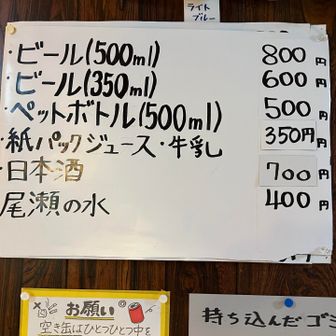 ライト
ブルー
・ビール(500ml) 800円
・ビール(350ml) 600円
・ペットボトル(500ml) 500円
・紙パックジュース・牛乳 350円
・日本酒 700円
尾瀬の水 400円
お願い
空き缶はひとつひとつ中を
持ち込んだゴ